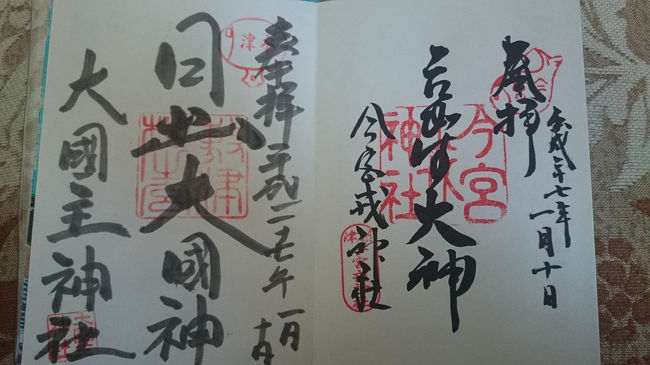 奉拝
平成二十七年
一月十日
大神
今宮戎神社
今宮
神社
奉拝 平成二七年 一月
十日
日出大國神
大國主神社
敷津